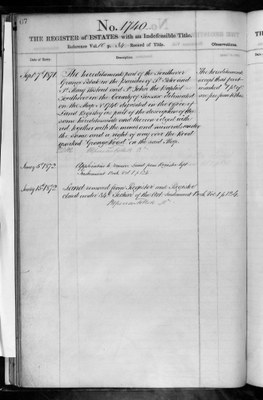 No. 1740
THE REGISTER of ESTATES with an Indefeasible Title.
Reference Vol. Record of Title.
Date of Entry.
Description.
Observations.
Sept 7th 1871
The hereditaments part of the Southover
Grange Estate in the Parishes of St Peter and
St Mary Westout and St John the Baptist
Southover in the County of Sussex delineated
on the Map No 1740 deposited in the Office of
Land Registry as part of the description of the
same hereditaments and thereon edged with
red together with the mines and minerals under
the same and a right of way over the Road
marked "Grange Road" on the said Map
The hereditaments
except that part
marked
are free from tithes
January 6th 1873
Application to remove Land from Register. See
Instrument Book Vol 8 p
January 15th 1873
Land removed from Register and Register
closed under 34th Section of the Act. Instrument Book Vol 8 p